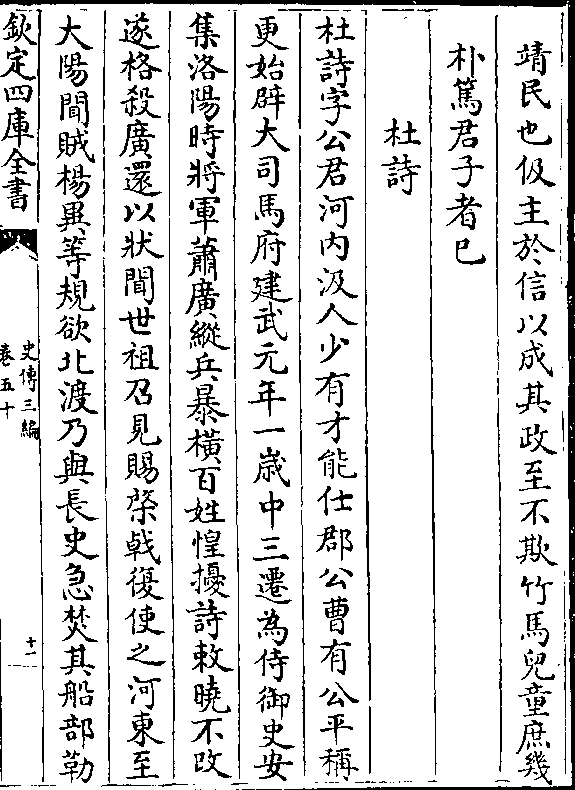 靖民也伋主於信以成其政至不欺竹馬兒童庶幾
朴篤君子者已
杜詩
杜詩字公君河内汲人少有才能仕郡公曹有公平稱
更始辟大司馬府建武元年一歲中三遷為侍御史安
集洛陽時將軍蕭廣縱兵暴橫百姓惶擾詩敕曉不改
遂格殺廣還以狀聞世祖召見賜棨戟復使之河東至
大陽聞賊楊異等規欲北渡乃與長史急焚其船部勒
欽定四庫全書
史傳三編
卷五十
十一